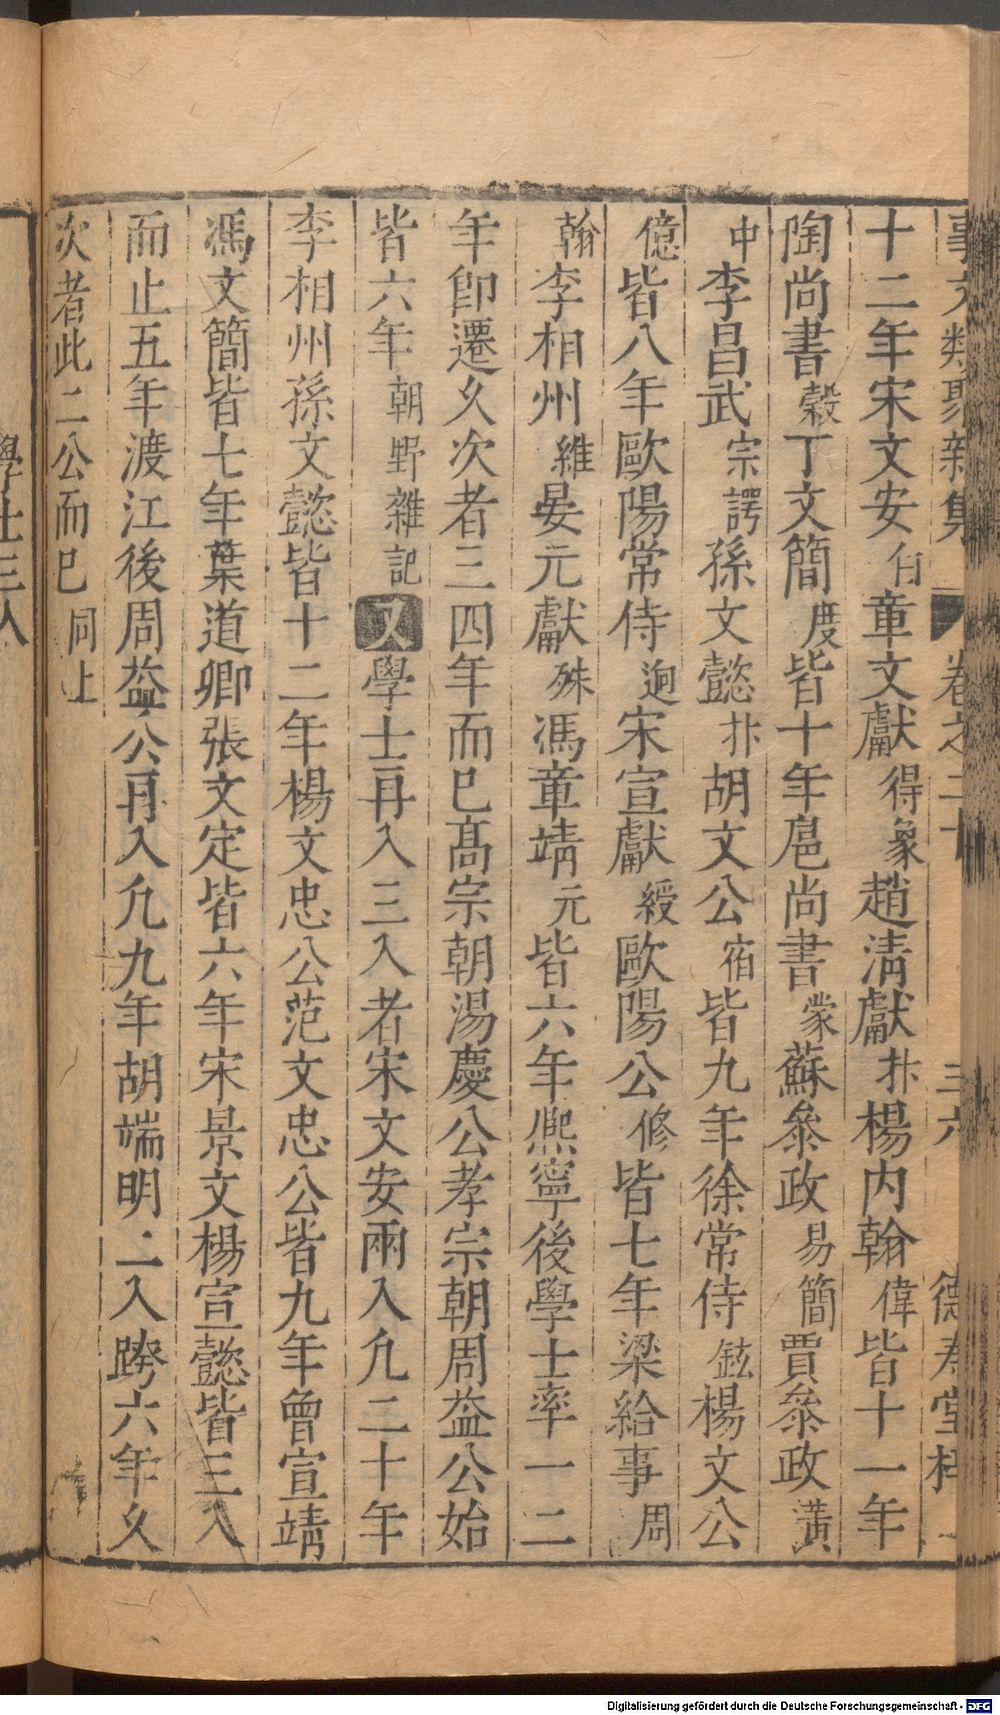 事文類聚新集 卷之二十 三六 德壽堂梓
十二年宋文安白章文獻得象趙清獻抃楊內翰偉皆十一年
陶尚書穀丁文簡度皆十年扈尚書蒙蘇叅政易簡賈叅政黃
中李昌武宗諤孫文懿抃胡文公宿皆九年徐常侍鉉楊文公
億皆八年歐陽常侍迥宋宣獻綬歐陽公修皆七年梁給事周
翰李相州維晏元獻殊馮章靖元皆六年熈寧後學士率一二
年卽遷久次者三四年而已髙宗朝湯慶公孝宗朝周益公始
皆六年朝野雜記又學士再入三入者宋文安兩入凢二十年
李相州孫文懿皆十二年楊文忠公范文忠公皆九年曾宣靖
馮文簡皆七年葉道卿張文定皆六年宋景文楊宣懿皆三入
而止五年渡江後周益公再入凢九年胡端明二入跨六年久
次者此二公而已同上
學士三入
Digitalisierung gefördert durch die Deutsche Forschungsgemeinschaft - DFG